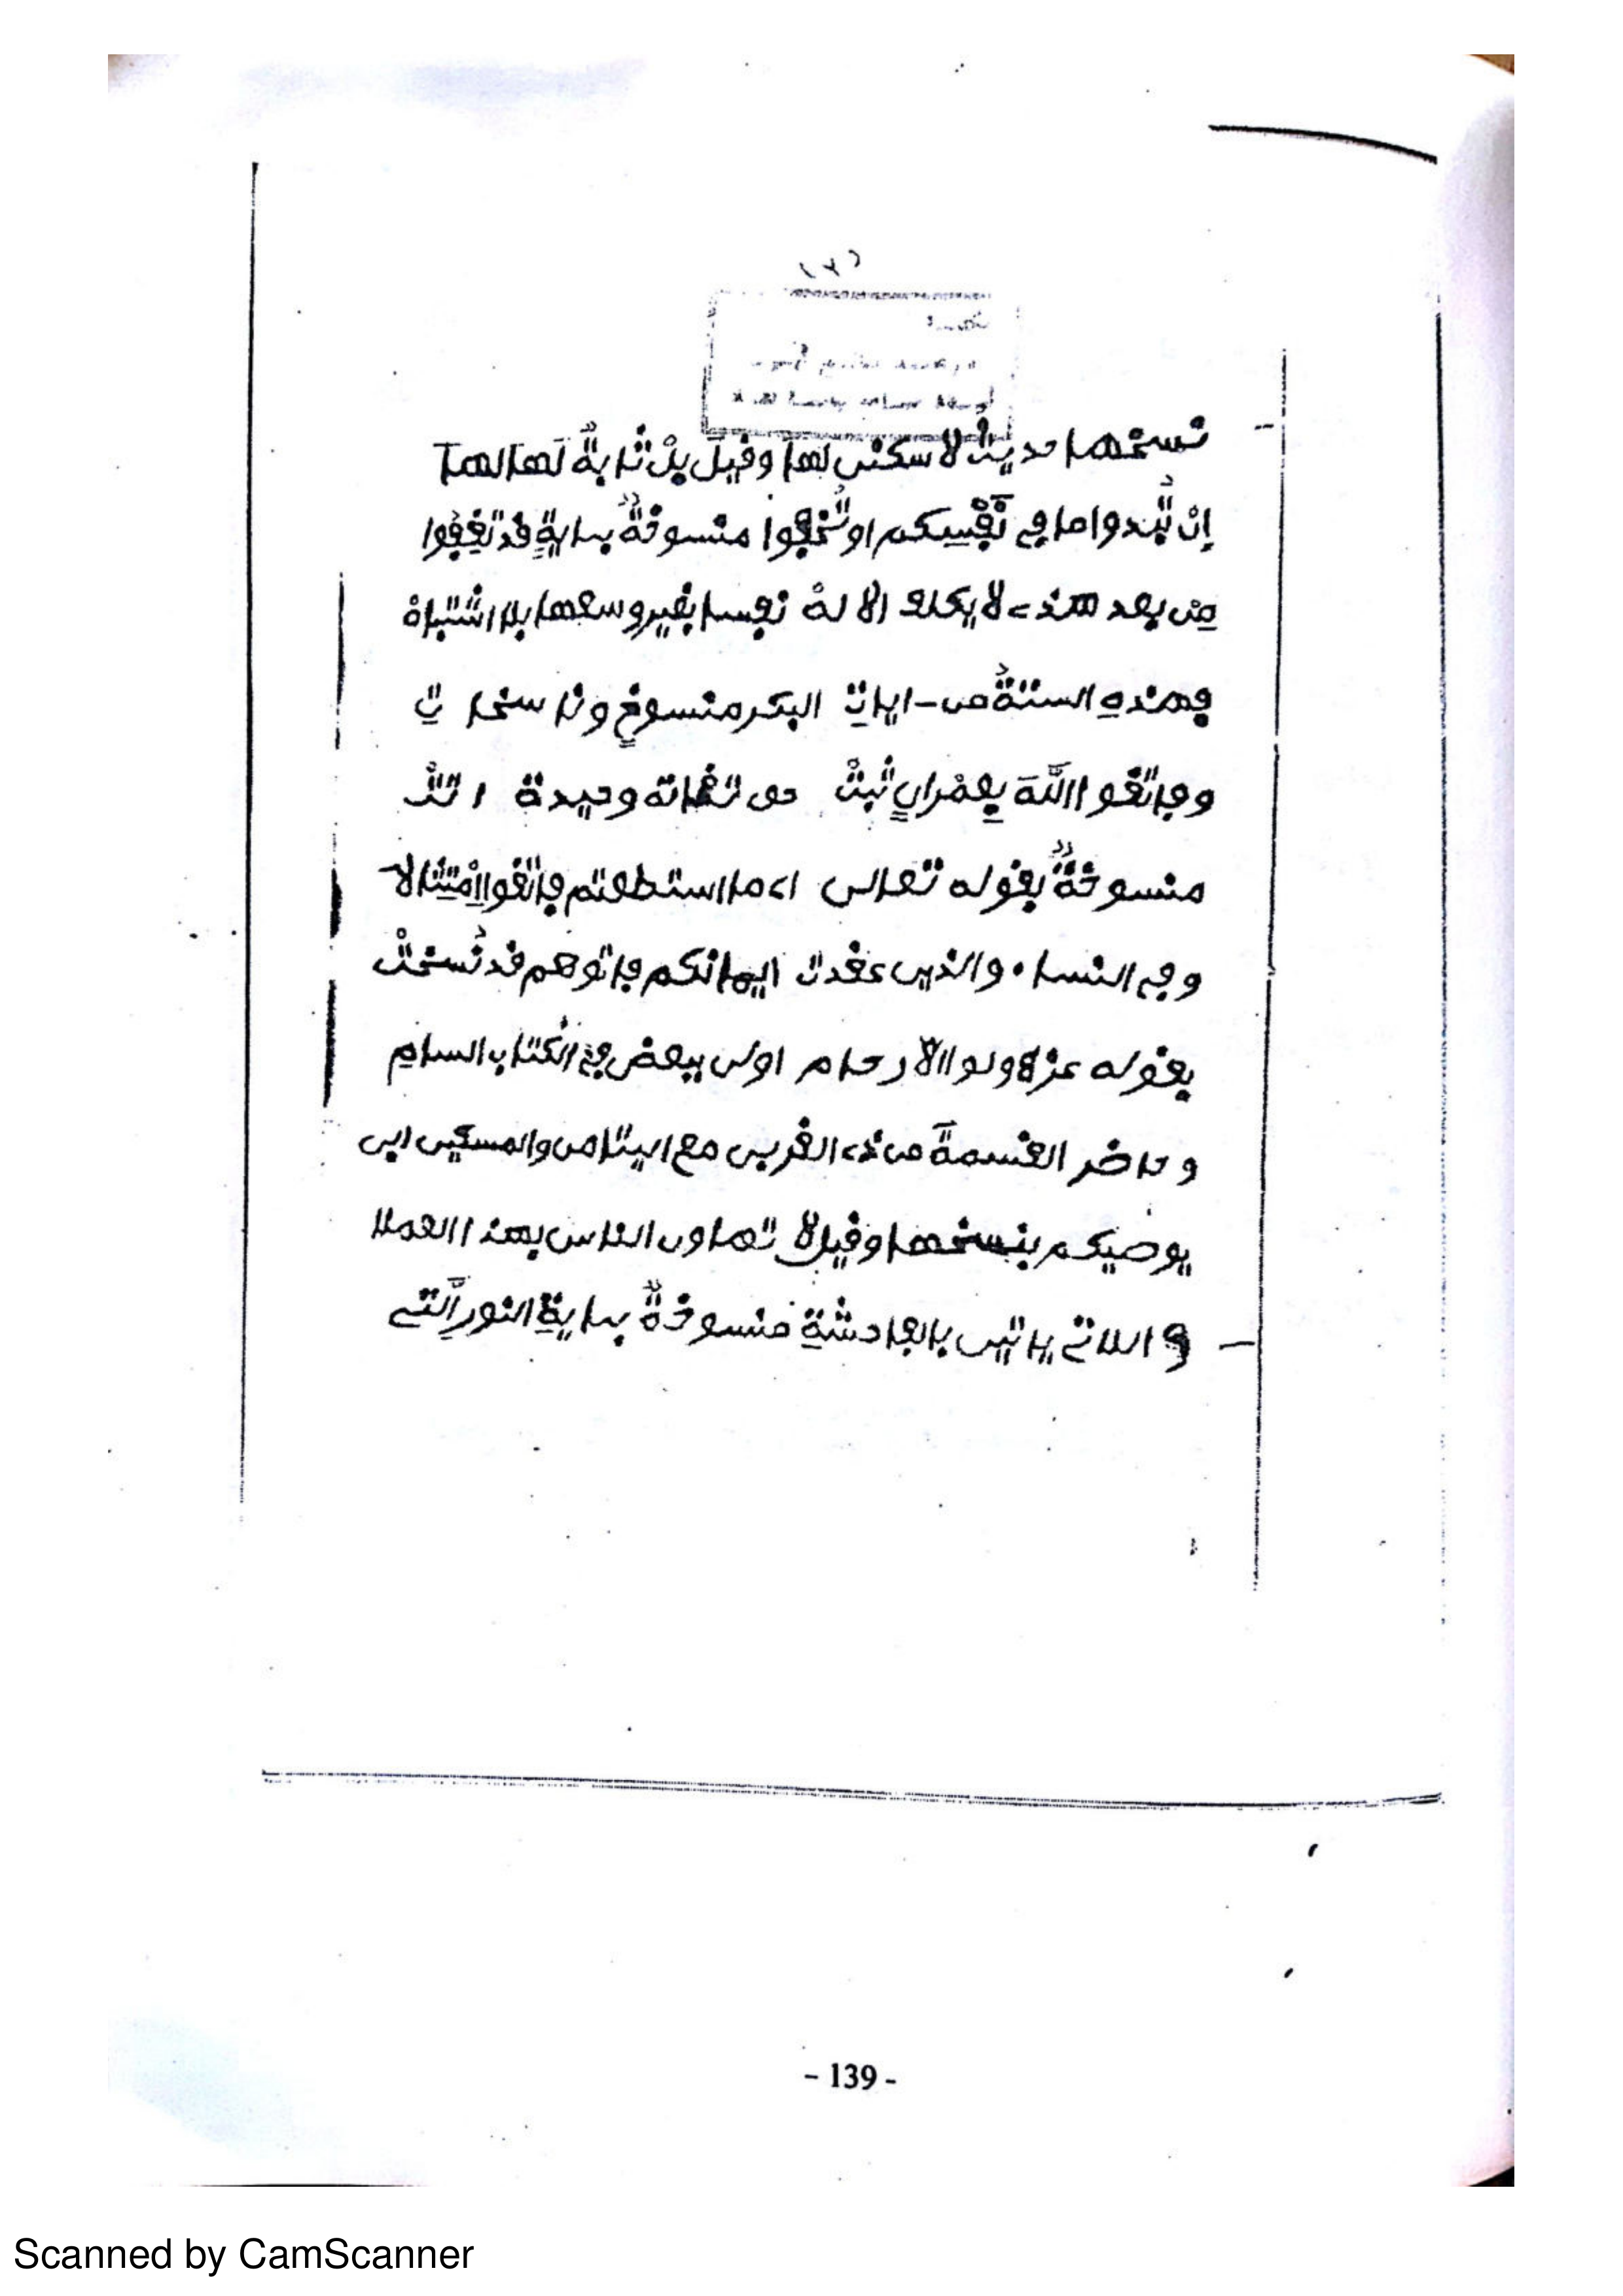 نسخها حديثُ لا سكنى لها وفيلَ بلْ ثابةٌ لها لها
إنْ تُبدوا ما في نَفْسِكم او تُخْفوا منسوخةٌ بئايةٍ قد تعقبوا
مِن بعد هذى لا يكلف الالهْ نفسا بغير وسعها بلا اشتباهْ
فهذهِ الستةُ من ايات البكر منسوخٍ وناسخا ت
وفاتقوا اللَّهَ بِعِمْرانٍ ثبتْ حق تقاته وحيدة اتتْ
منسوخةٌ بقوله تعالى اى ما استطعتم فاتقوا امْتثالا
وفى النسا. والذين عقدت ايمانكم فئاتوهم قد نُسختْ
بقوله عز لا ولوا الارحام اولى ببعض في الكتاب السامِ
وحاضر القسمةَ من ذى القربى مع اليتامى والمسكين ابى
يوصيكم بنسخها وقيل لا تهاون الناس بهذا العملا
واللاتى ياتين بالفاحشةِ منسوخةٌ بئايةِ النورِ الَّتى
- 139 -
Scanned by CamScanner